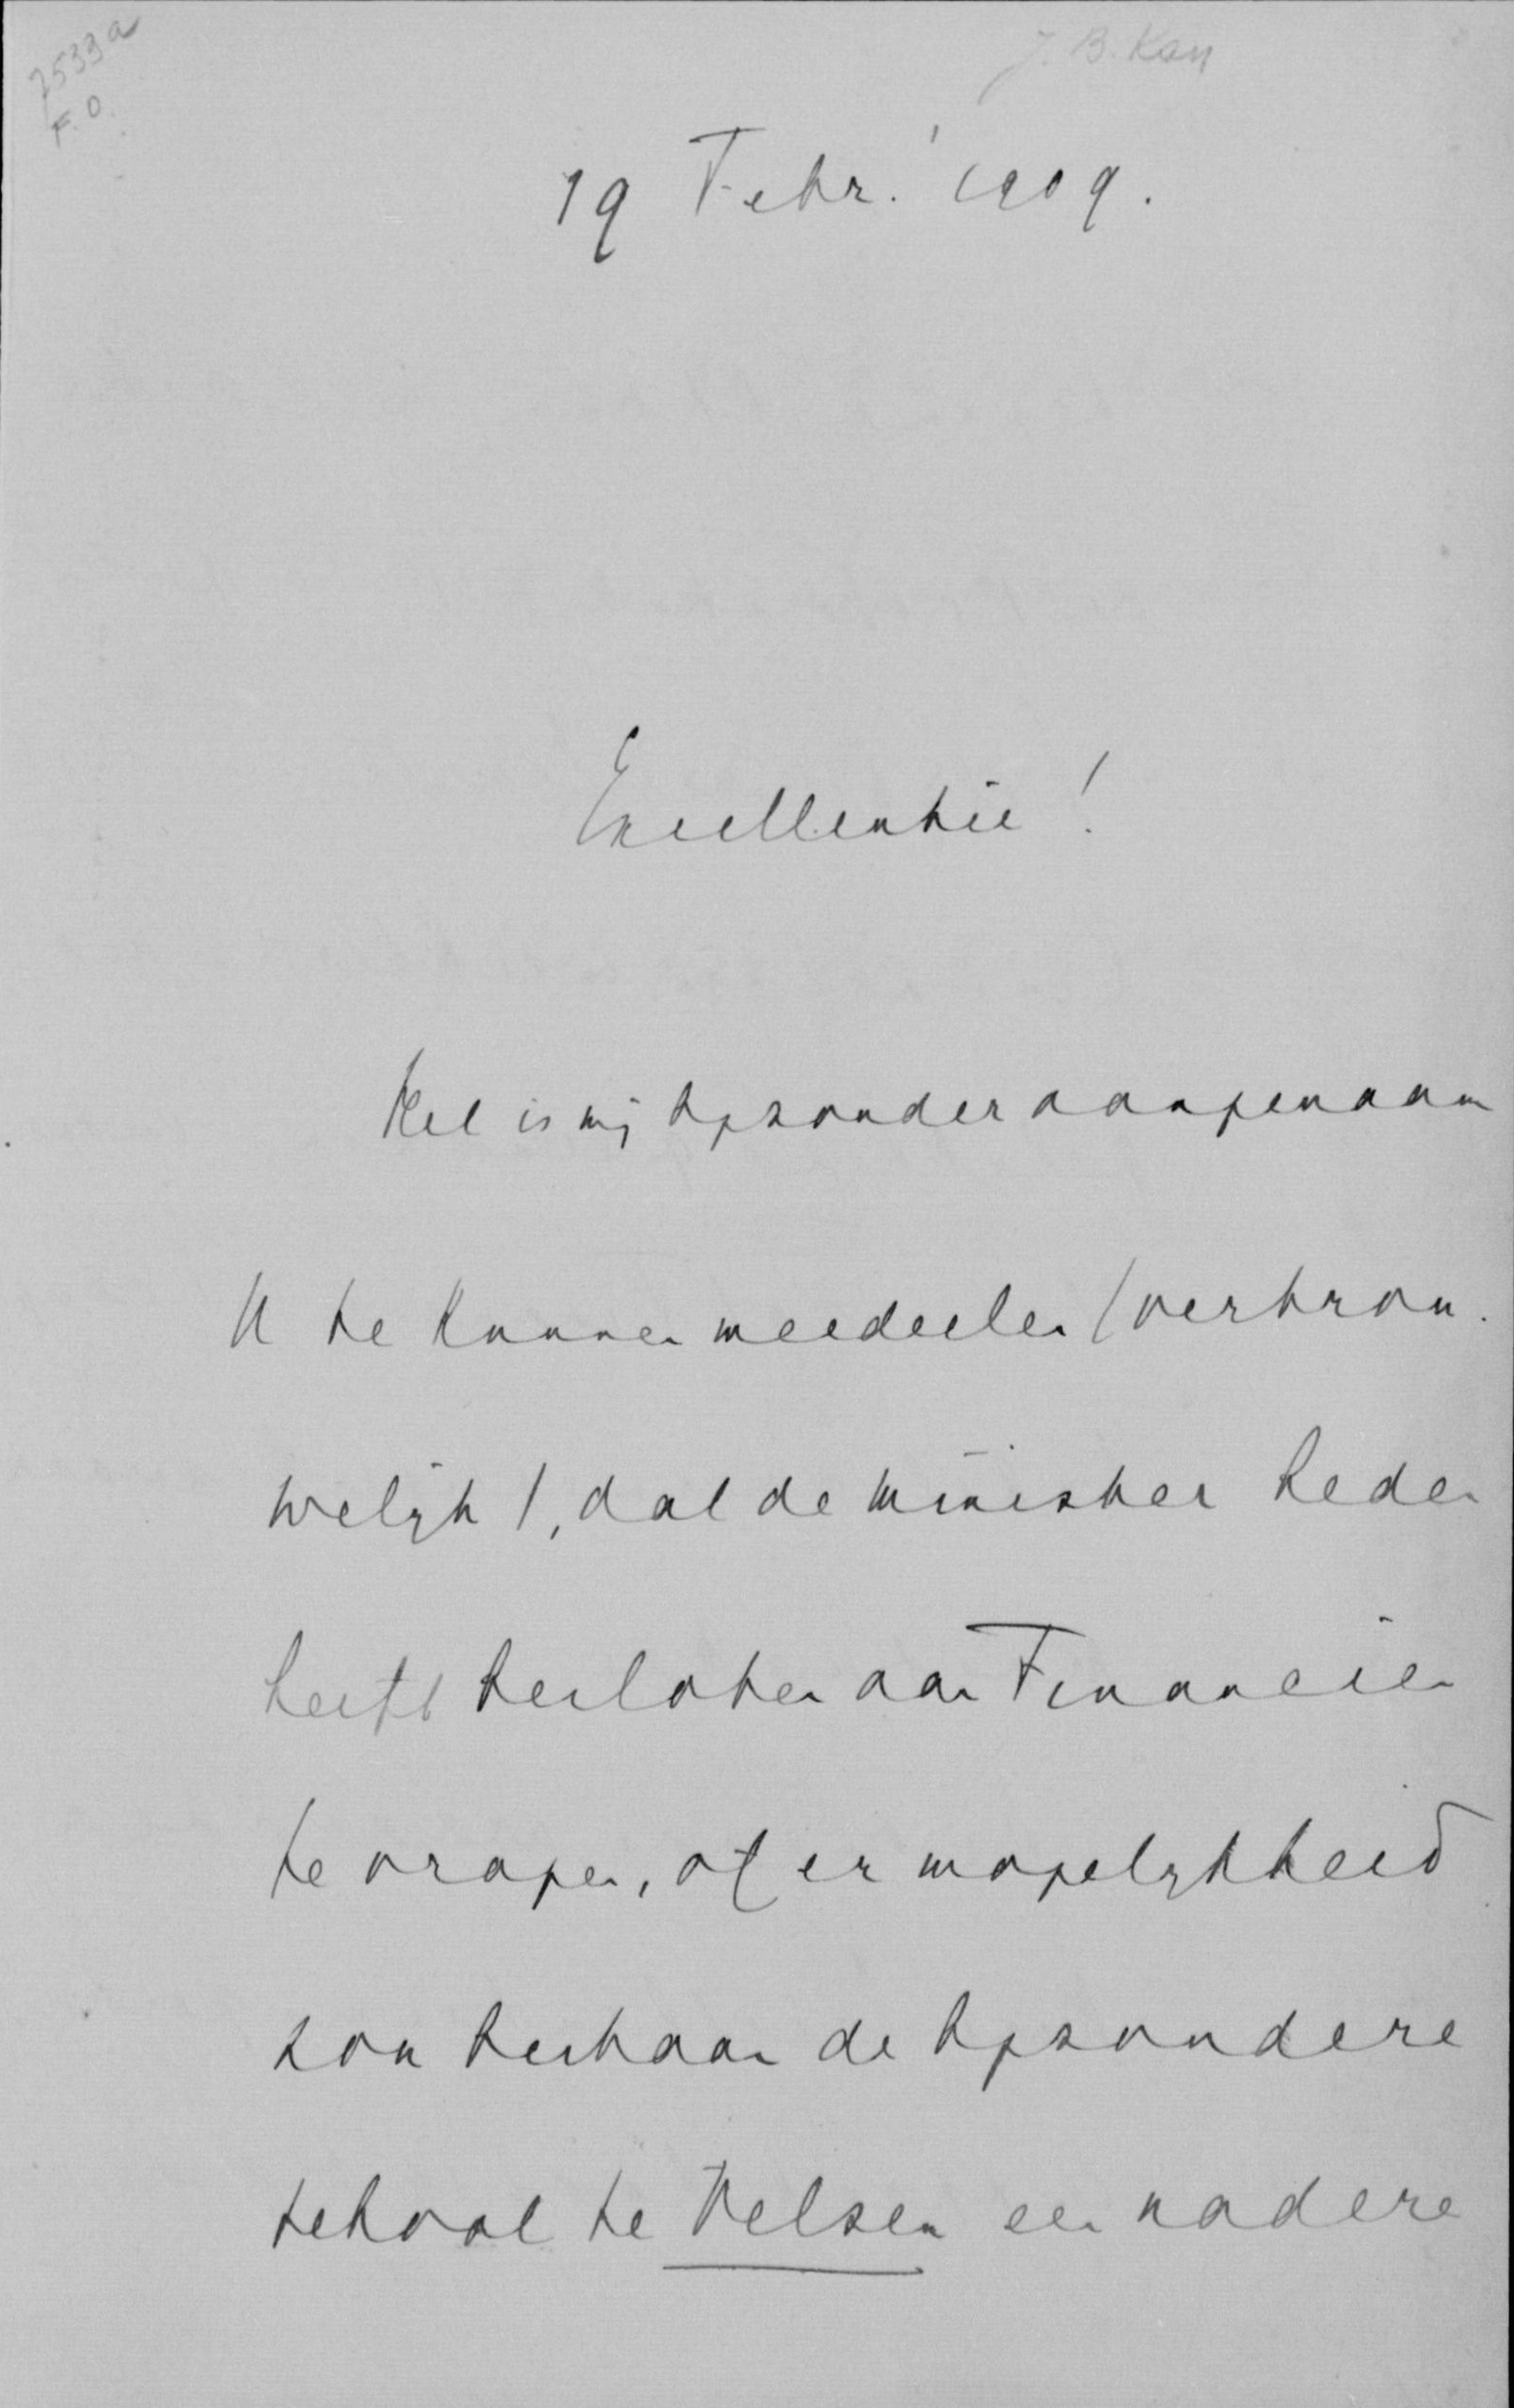 2533a
F.O.
J. B. Kan
19 Febr. 1909.
Excellentie!
Het is mij byzonder aangenaam
U te kunnen meedeelen (vertrou-
welyk), dat de Minister heden
heeft besloten aan Financiën
te vragen, of er mogelykheid
zou bestaan de byzondere
school te Velsen een nadere